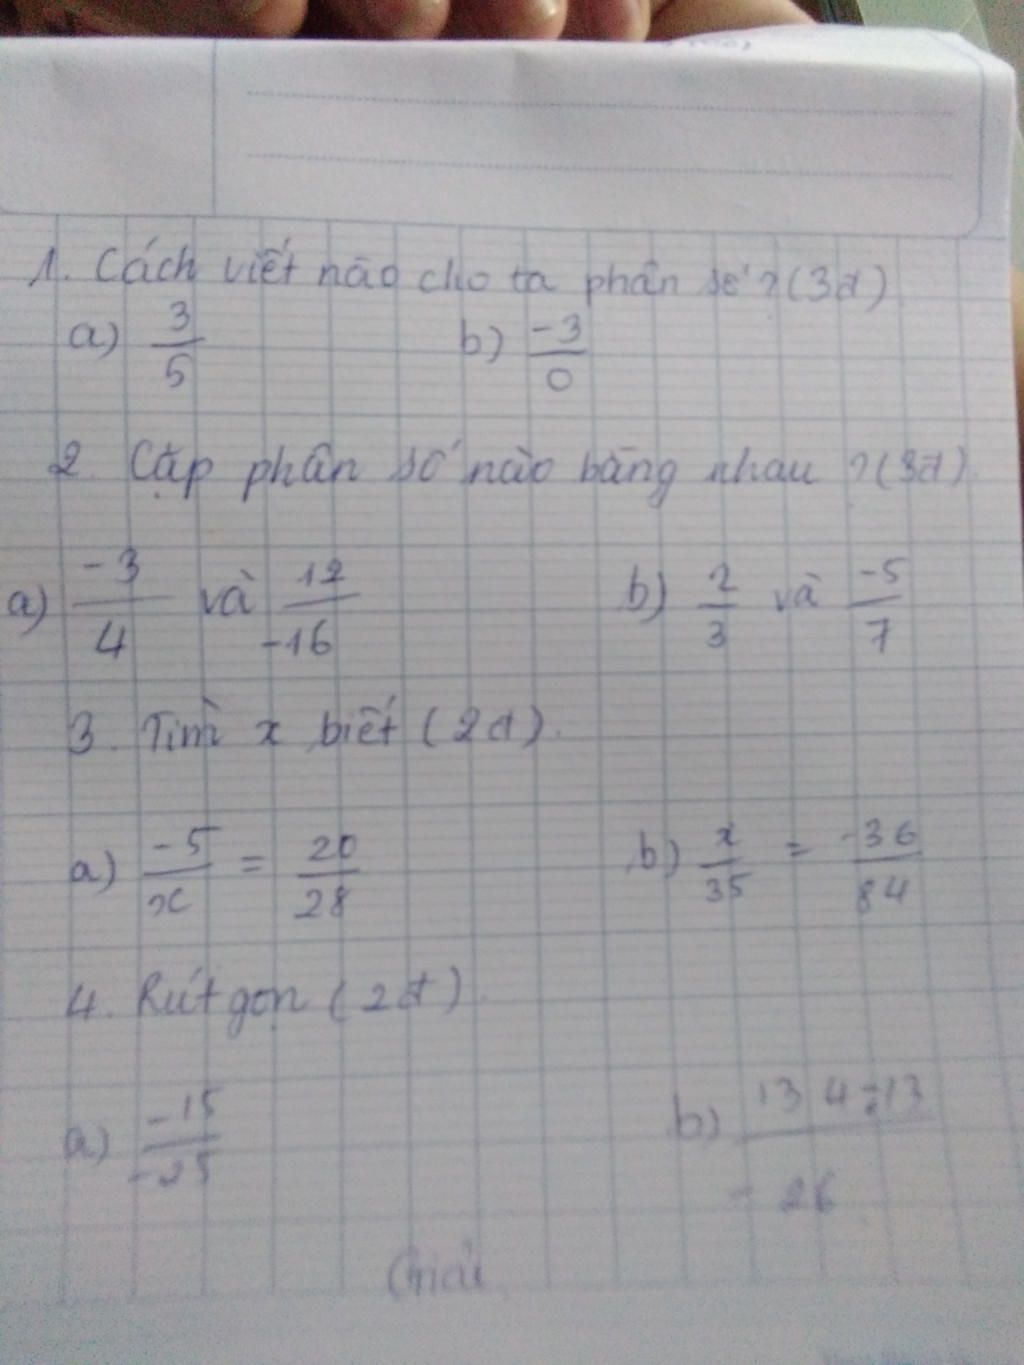 1. Cách viết nào cho ta phân số ? (3đ)
a) 3/5 b) -3/0
2. Cặp phân số nào bằng nhau ? (3đ)
a) -3/4 và 12/-16 b) 2/3 và -5/7
3. Tìm x biết (2đ).
a) -5/x = 20/28 b) x/35 = -36/84
4. Rút gọn (2đ).
a) -15/-25 b)
Giải